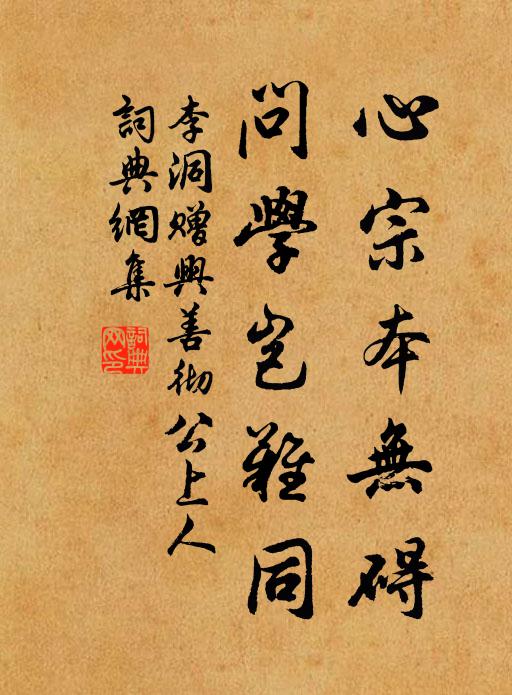 心宗本無碍
問學岂難同
李洞赠興善彻公上人
詞典網集
詞典网印